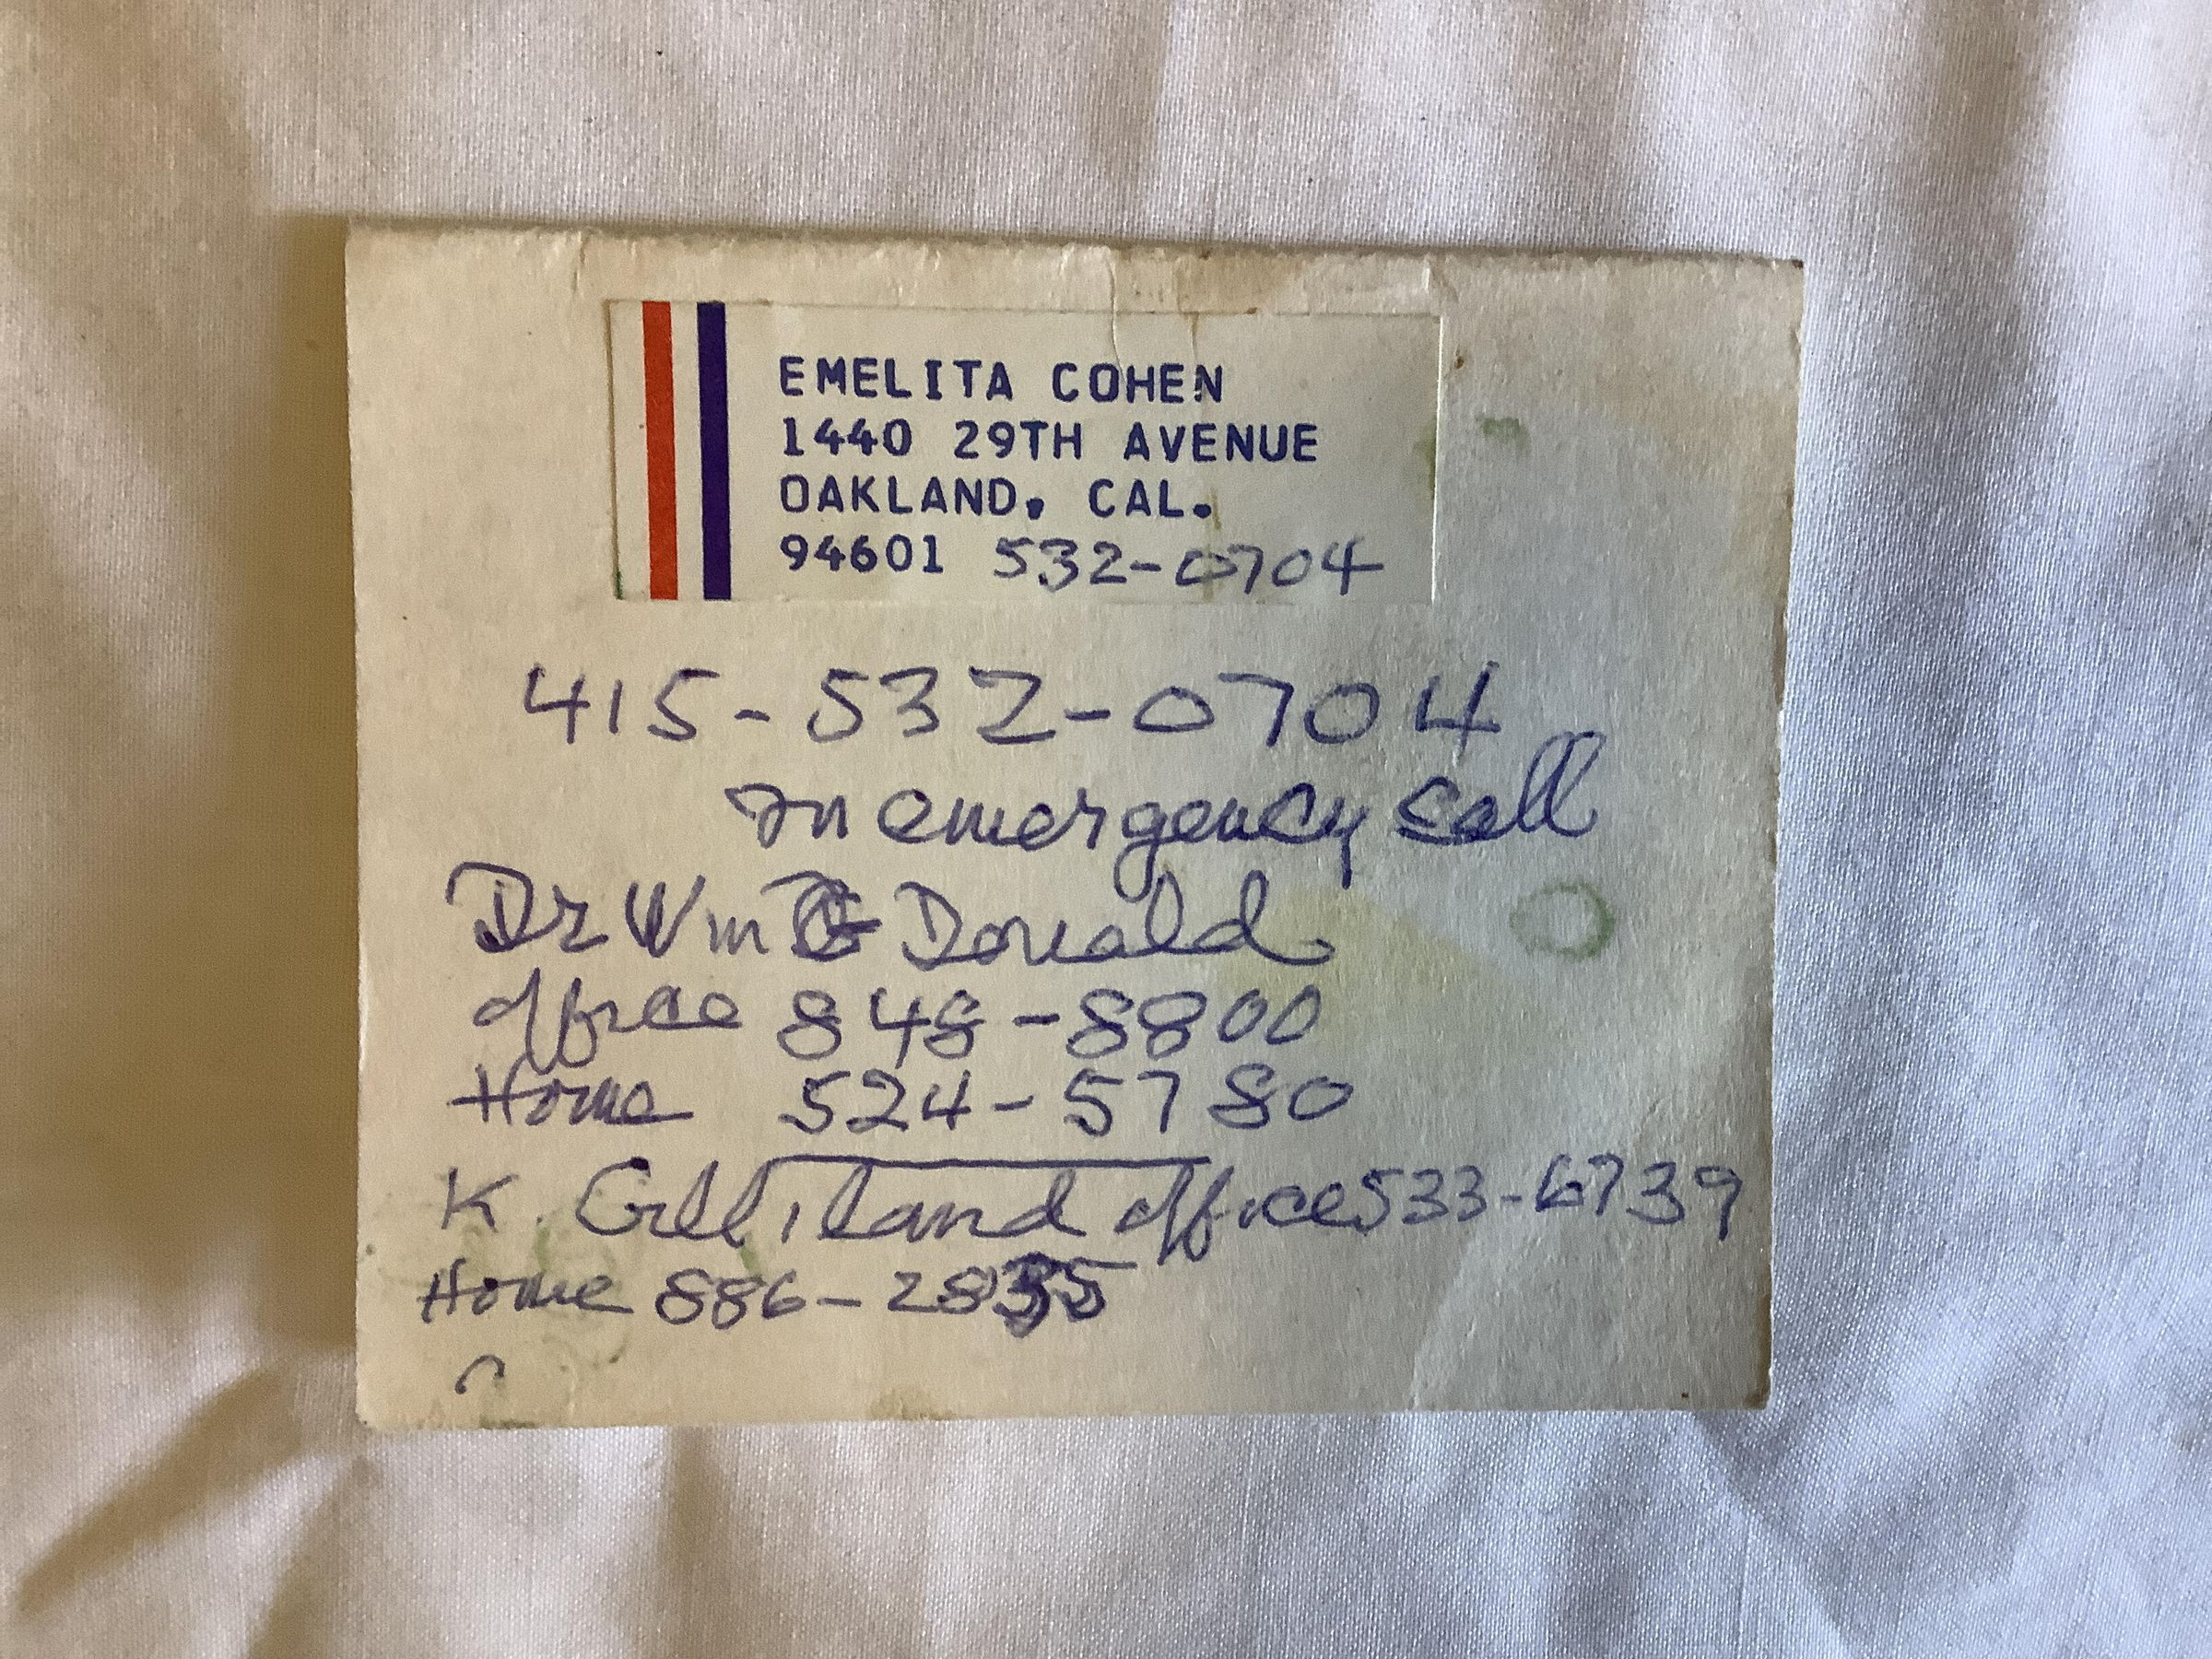 EMELITA COHEN
1440 29TH AVENUE
OAKLAND, CAL.
94601 532-0704
415-532-0704
In emergency call
Dr Wm Donald
office 848-8800
Home 524-5780
K. Gilliland office 533-6739
Home 886-2835